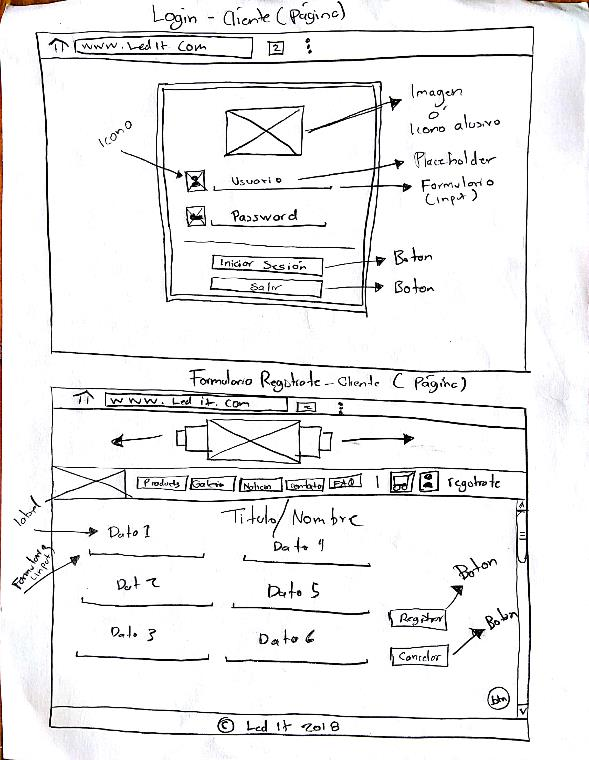 Login - Cliente (Página)
www.Led It Com
2
Imagen
ó
Icono alusivo
Icono
Usuario
Placeholder
Formulario
(input)
Password
Iniciar Sesión
Boton
Salir
Boton
Formulario Registrate - Cliente ( Página)
www.Led it.com
Products
Galeria
Noticias
Contacto
FAQ
registrate
Titulo/Nombre
label
Dato 1
Dato 4
Formulario
(input)
Dat 2
Dato 5
Boton
Dato 3
Dato 6
Registrar
Boton
Cancelar
btn
© Led It 2018